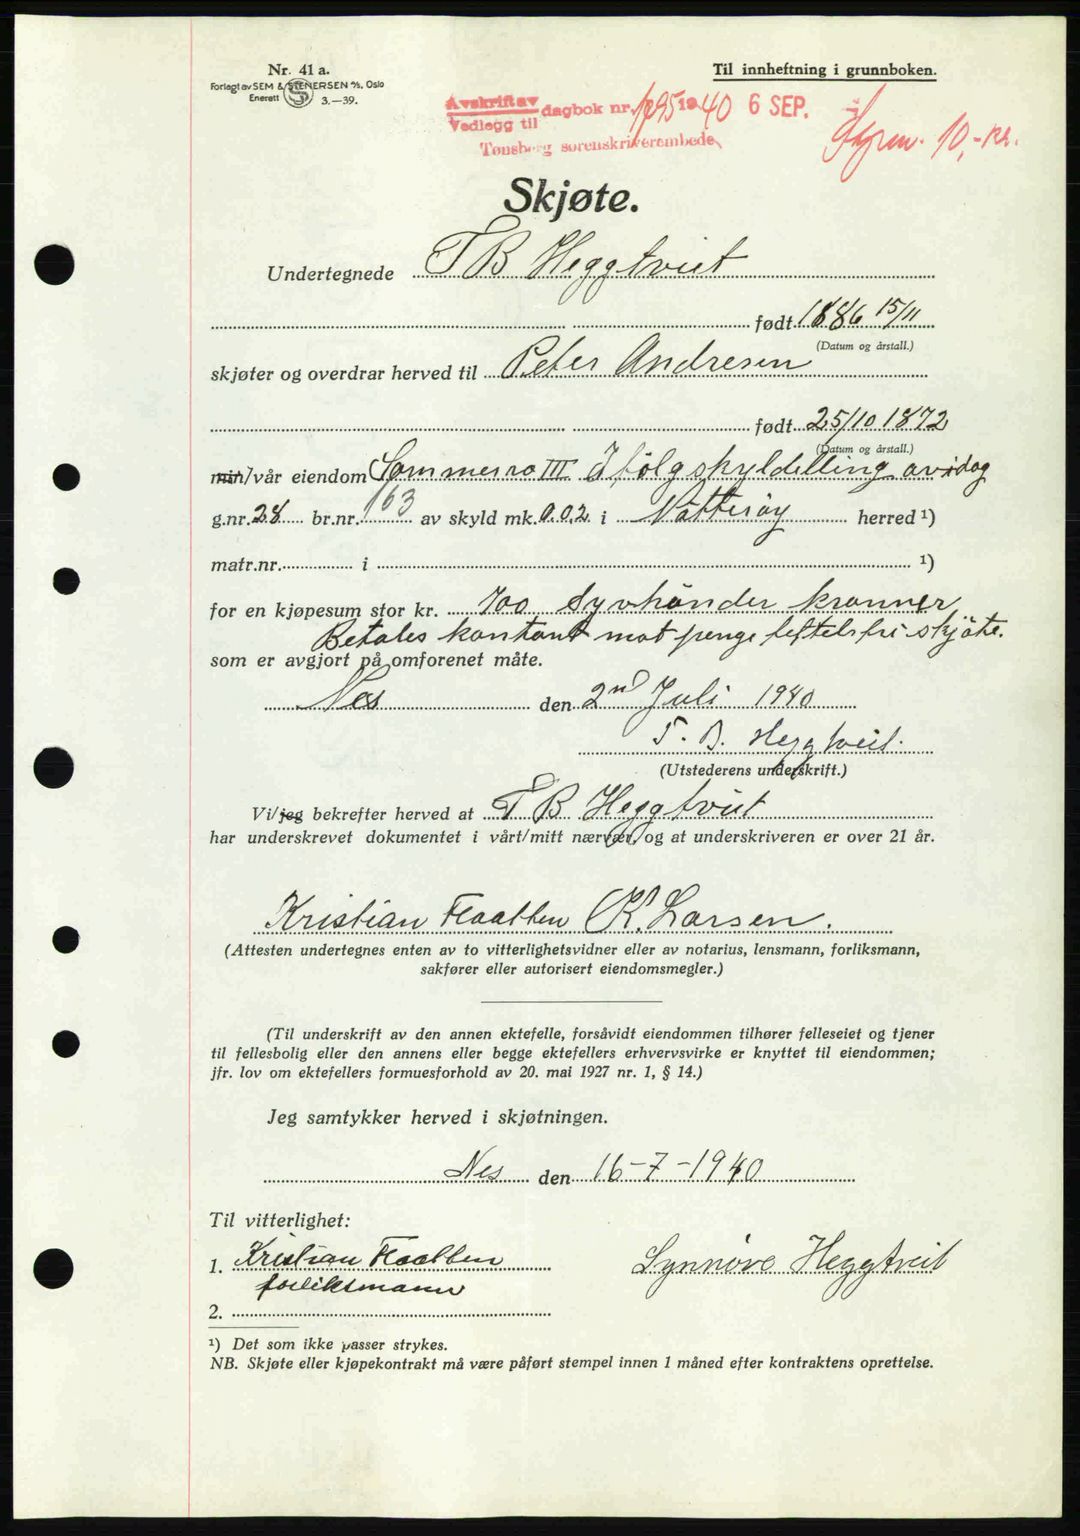 Nr. 41 a.
Forlagt av SEM & STENERSEN A/S, Oslo
Enerett 3.—39.
Til innheftning i grunnboken.
Avskrift av
Vedlegg til dagbok nr. 1940 6 SEP.
Tønsberg sorenskriverembede
10,- kr.
Skjøte.
Undertegnede T B Heggtveit
født 1886 15/11
(Datum og årstall.)
skjøter og overdrar herved til Peter Andresen
født 25/10 1872
(Datum og årstall.)
min/vår eiendom Sommerro III Ifølg skyldelling av idag
g.nr. 28 br.nr. 163 av skyld mk. 0.02 i Nøtterøy herred ¹)
matr.nr. i ¹)
for en kjøpesum stor kr. 700 Syvhunder kronner
Betales kontant mot penge heftelsfri skjøte.
som er avgjort på omforenet måte.
Nes den 2nd Juli 1940
T. B. Heggtveit.
(Utstederens underskrift.)
Vi/jeg bekrefter herved at T B Heggtveit
har underskrevet dokumentet i vårt/mitt nærvær, og at underskriveren er over 21 år.
Kristian Flaatten K. Larsen.
(Attesten undertegnes enten av to vitterlighetsvidner eller av notarius, lensmann, forliksmann,
sakfører eller autorisert eiendomsmegler.)
(Til underskrift av den annen ektefelle, forsåvidt eiendommen tilhører felleseiet og tjener
til fellesbolig eller den annens eller begge ektefellers erhvervsvirke er knyttet til eiendommen;
jfr. lov om ektefellers formuesforhold av 20. mai 1927 nr. 1, § 14.)
Jeg samtykker herved i skjøtningen.
Nes den 16-7-1940
Til vitterlighet:
1. Kristian Flaatten
forliksmann
Synnøve Heggtveit
2.
¹) Det som ikke passer strykes.
NB. Skjøte eller kjøpekontrakt må være påført stempel innen 1 måned efter kontraktens oprettelse.